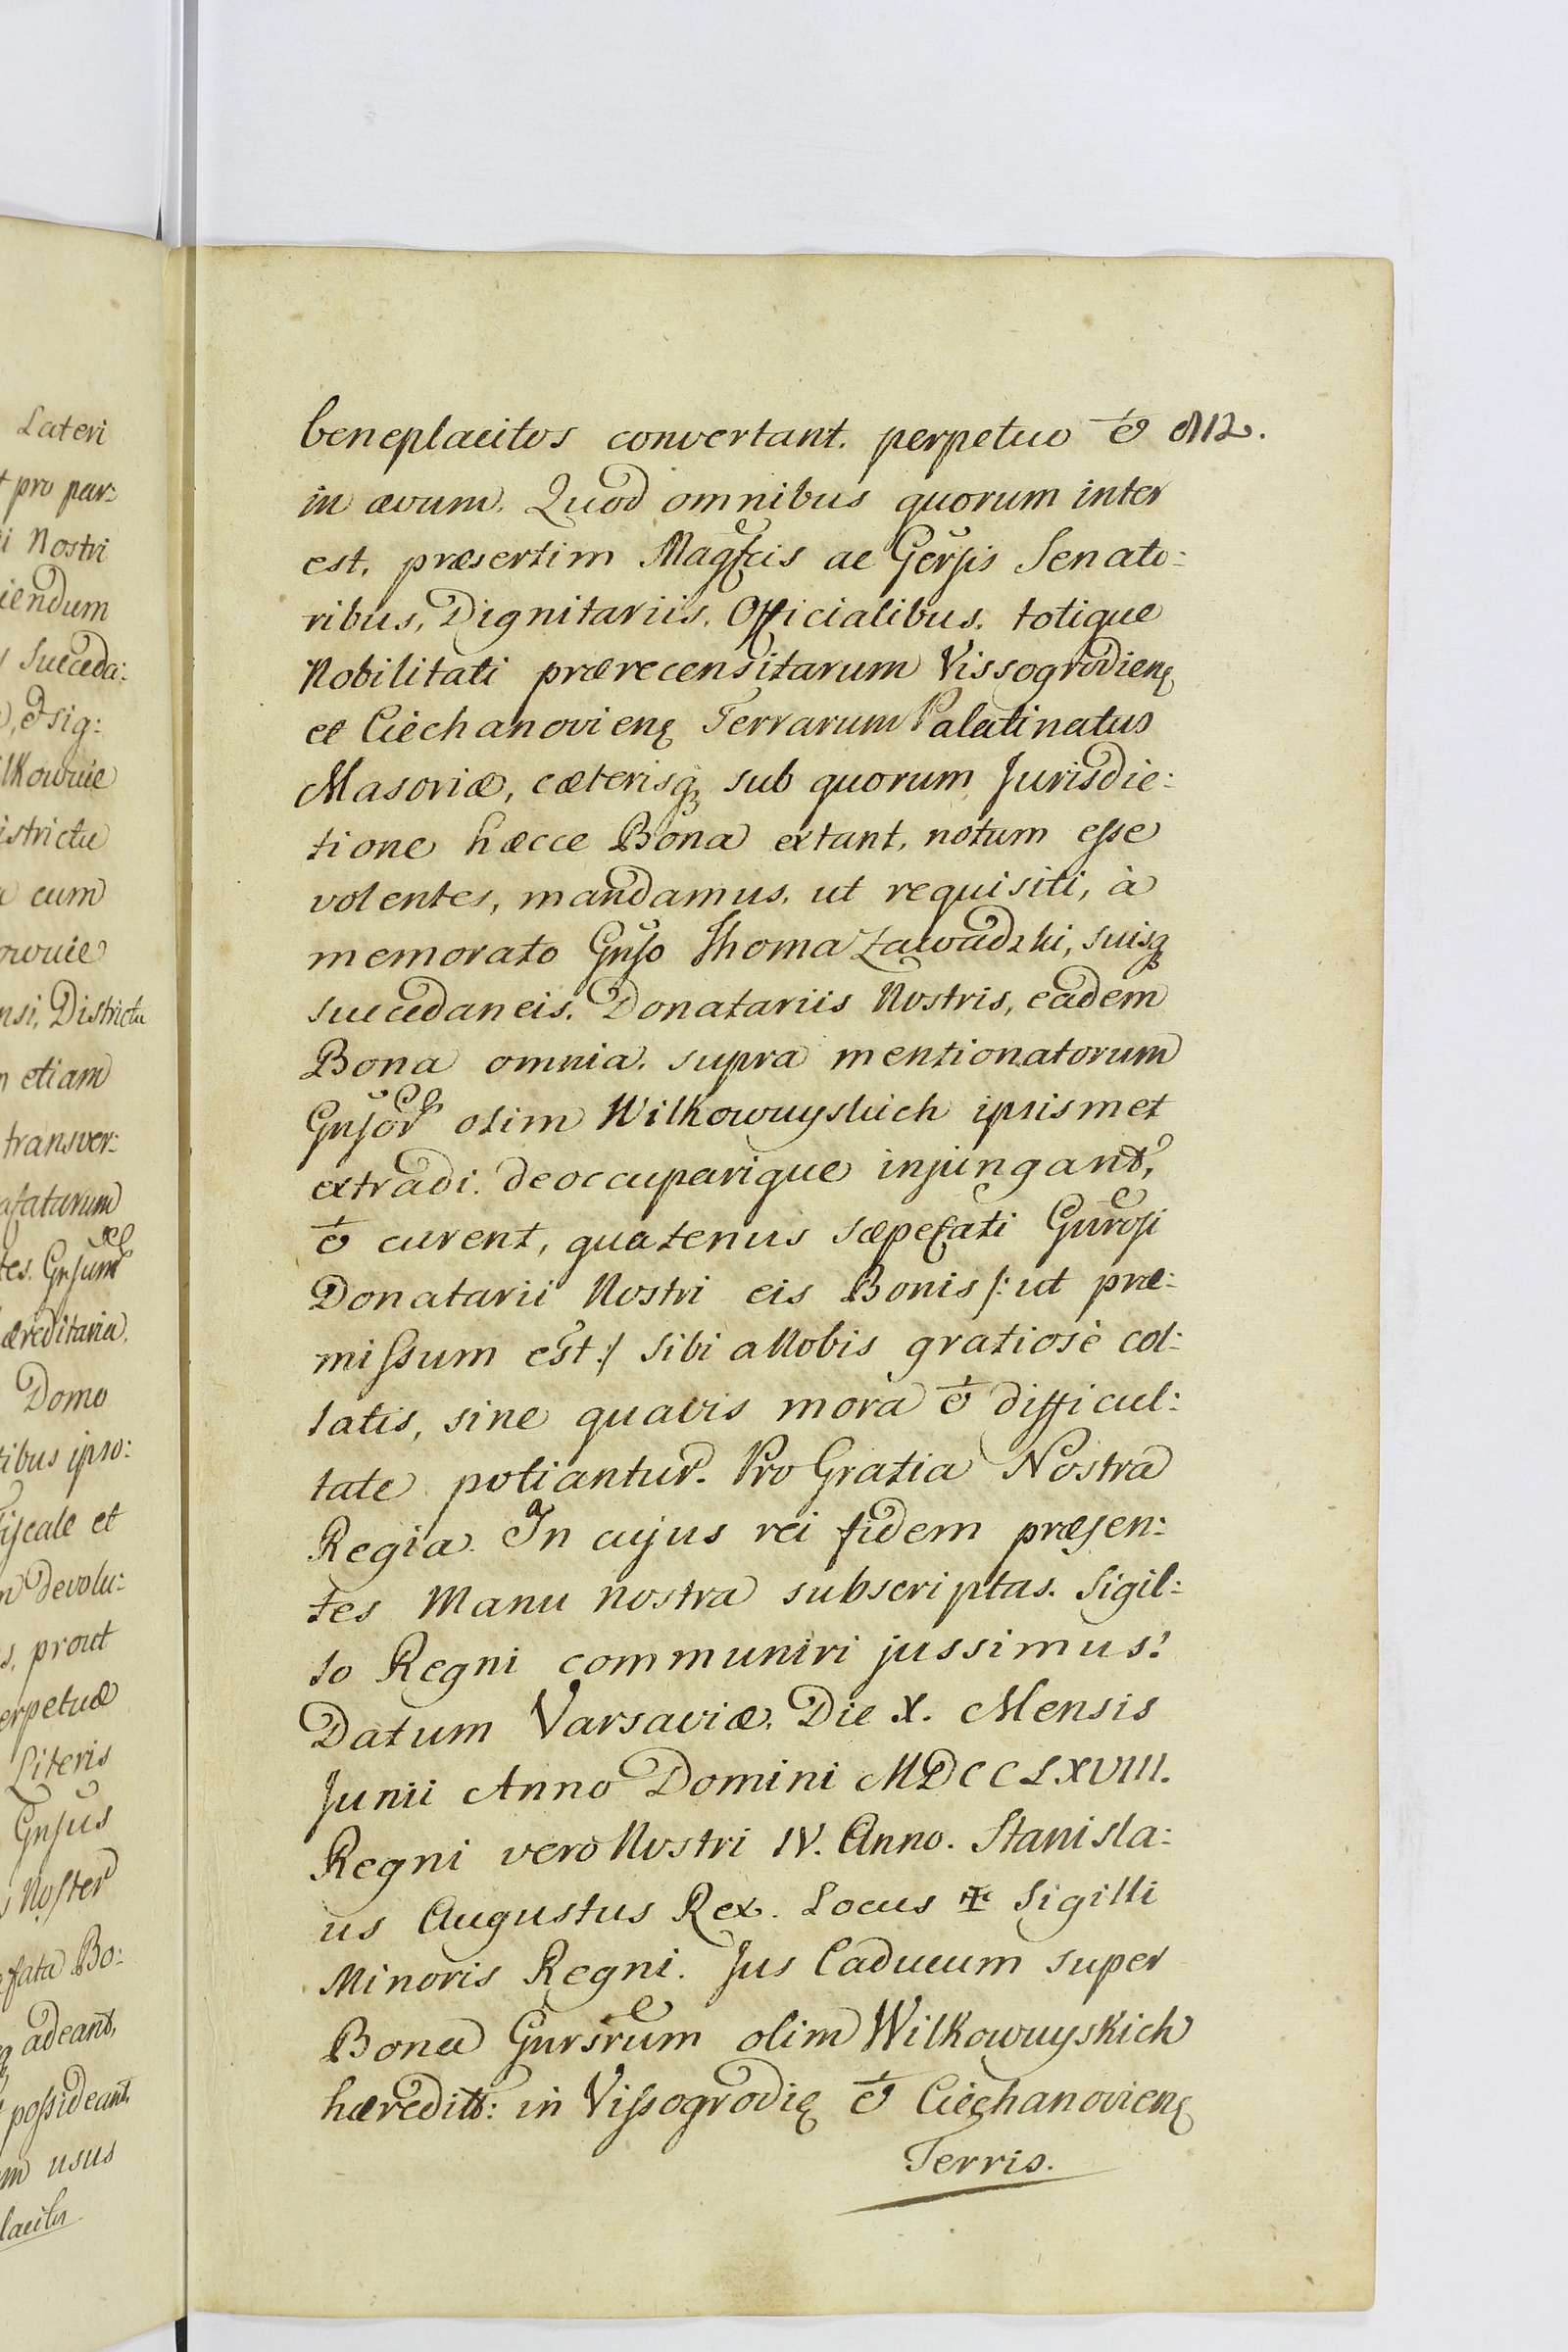 Lateri
t pro par:
i Nostri
iendum
Succeda:
et sig:
lkowuie
istrictu
cum
owuie
nsi, Districtu
etiam
transver:
afatarum
tes. Gnsum
æreditaria.
Domo
tibus ipso:
iscale et
Devolu:
s, prout
erpetuæ
Literis
Gnsus
Noster
fata Bo:
adeant,
possideant.
m usus
lacitos
beneplacitos convertant. perpetuo & 112.
in ævum. Quod omnibus quorum inter
est, præsertim Magfcis ac Gersis Senato:
ribus, Dignitariis, Officialibus, totique
Nobilitati prærecensitarum Vissogrodienę
et Ciechanovienę Terrarum Palatinatus
Masoviæ, cæterisqꝫ sub quorum Jurisdic:
tione hæcce Bona extant, notum esse
volentes, mandamus, ut requisiti, à
memorato Gnso Thoma Zawadzki, suisqꝫ
succedaneis, Donatariis Nostris, eadem
Bona omnia, supra mentionatorum
Gnsor olim Wilkowuyskich ipsismet
extradi, deoccuparique injungant,
& curent, quatenus sæpefati Gurosi
Donatarii Nostri eis Bonis /: ut præ:
missum est :/ sibi a Nobis gratiosè col:
latis, sine quavis mora & difficul:
tate potiantur. Pro Gratia Nostra
Regia. In cujus rei fidem præsen:
tes Manu nostra subscriptas, Sigil:
lo Regni communiri jussimus.
Datum Varsaviæ, Die X. Mensis
Junii Anno Domini MDCCLXVIII.
Regni vero Nostri IV. Anno. Stanisla:
us Augustus Rex. Locus ✠ Sigilli
Minoris Regni. Jus Caducum super
Bona Gnrsrum olim Wilkowuyskich
hæredit: in Vissogrodię & Ciechanovienę
Terris.